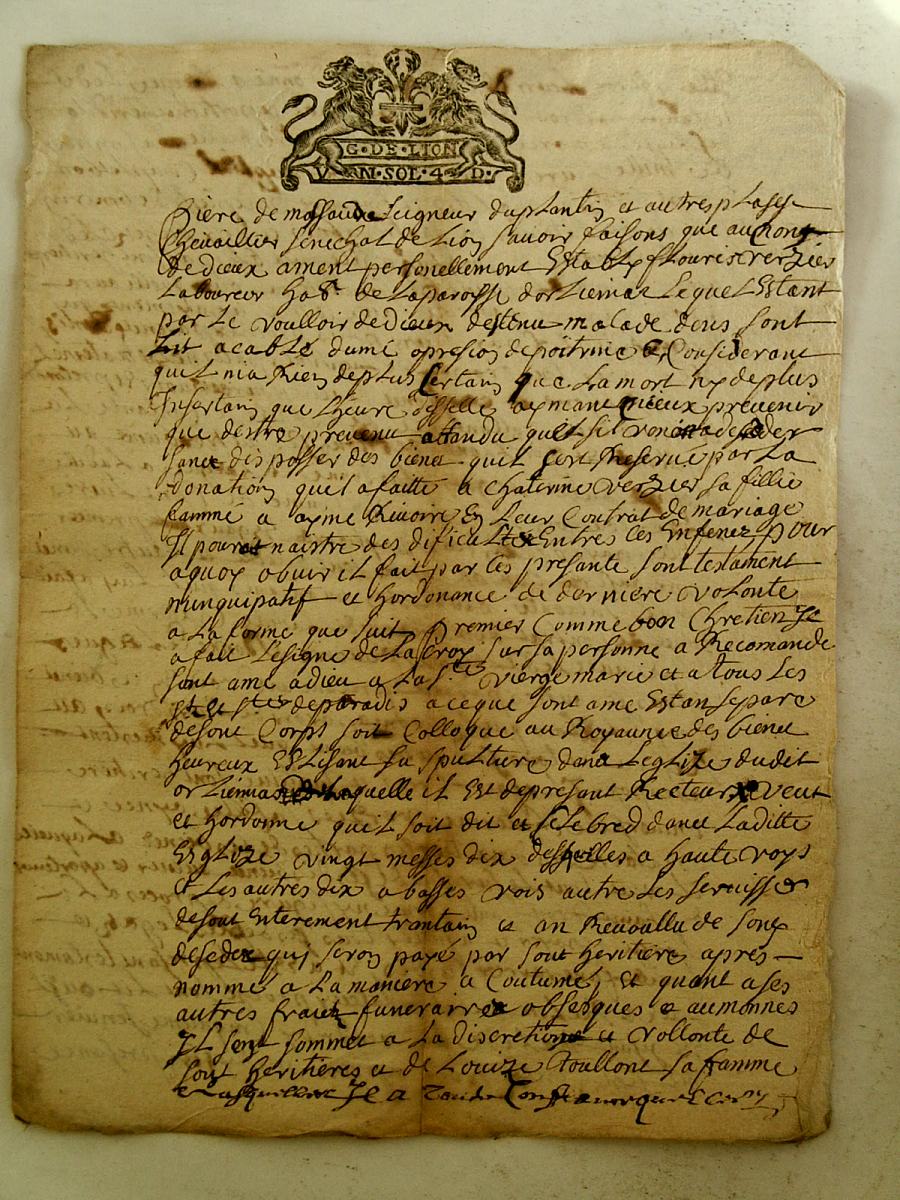 G·DE·LION
V N·SOL·4 D·
Pière de massaude seigneur duplantin et autres plases
Chevaillier senechal de Lion savoir faisons que au
de dieux ament personellement Establ flouris verzier
Laboureur hat de Laparoisse dorLiemas Lequel Estant
par Le voulloir de dieux destenu malade dens sont
Lit acablé dumé opresion depoitrine & Considerant
quil nia Rien deplus Certain que La mort ny deplus
Insertain que Lheure disselle aymant mieux prevenir
que destre prevenu attandu quil se
sanct disposser des bienct quil sest Reservé par La
donation quil a faitte a Chaterine verzier sa fillie
famme a ayme Rivoire En Leur Contrat de mariage
Il pouroit naistre des dificulté Entres ces Enfenz pour
aquoy obvir il fait par ces presante sont testament
nunquipatif et hordonance de derniere volonte
a La forme que suit premier Comme bon Chretien Il
a fait Le signe de La Croy sur sa personne a Recomandé
sont ame a dieu a La Ste vierge marie et a tous Les
St et Stes de paradis a ce que sont ame Estan separa
de sont Corps soit Colloque au Royaume des bienct
heureux ESLisant sa spulttiere danct Leglize dudit
orLiemas Laquelle il Est depresant Recteur veut
et hordonne quil soit dit et selebred danct Laditte
Esglize vingt messes dix desquelles a haute voys
et Les autres dix a basses vois autre Les servisse
de sont Enterement trantain et an Revoullu de sont
desedex qui seron payé par sont heritière apres
nommé a La manière a Coutumé, Et quant a ses
autres fraict funeraires obseques & aumonnes
Il sent sommet a La discretion et vollonte de
sont heritières et de Louize toullont sa famme
Il a